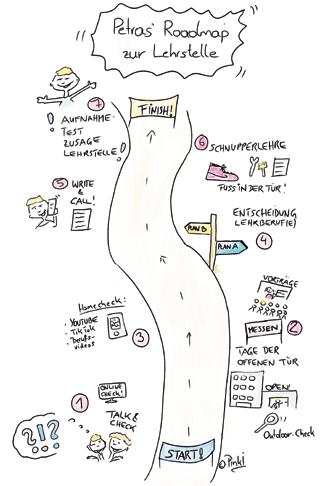 Petras' Roadmap
zur Lehrstelle
FINISH!
7
! AUFNAHME-
TEST
ZUSAGE
LEHRSTELLE!
6
SCHNUPPERLEHRE
FUSS IN DER TÜR!
5
WRITE
&
CALL!
ENTSCHEIDUNG
LEHRBERUF(E)
4
PLAN B
PLAN A
Homecheck:
· YOUTUBE
· TikTok
· Berufs-
videos
3
VORTRÄGE
MESSEN
2
TAGE DER
OFFENEN TÜR
OPEN
Outdoor-Check
1
ONLINE
CHECK!
TALK &
CHECK
?!?
START!
© Pinki